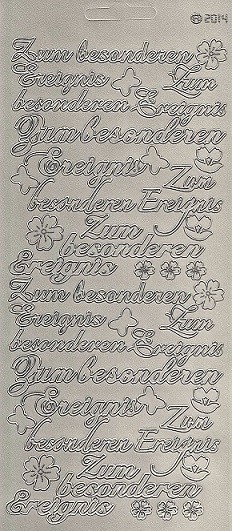 2014
Zum besonderen
Ereignis Zum
besonderen Ereignis
Zum besonderen
Ereignis Zum
besonderen Ereignis
Zum
besonderen
Ereignis
Zum besonderen
Ereignis Zum
besonderen Ereignis
Zum besonderen
Ereignis Zum
besonderen Ereignis
Zum
besonderen
Ereignis